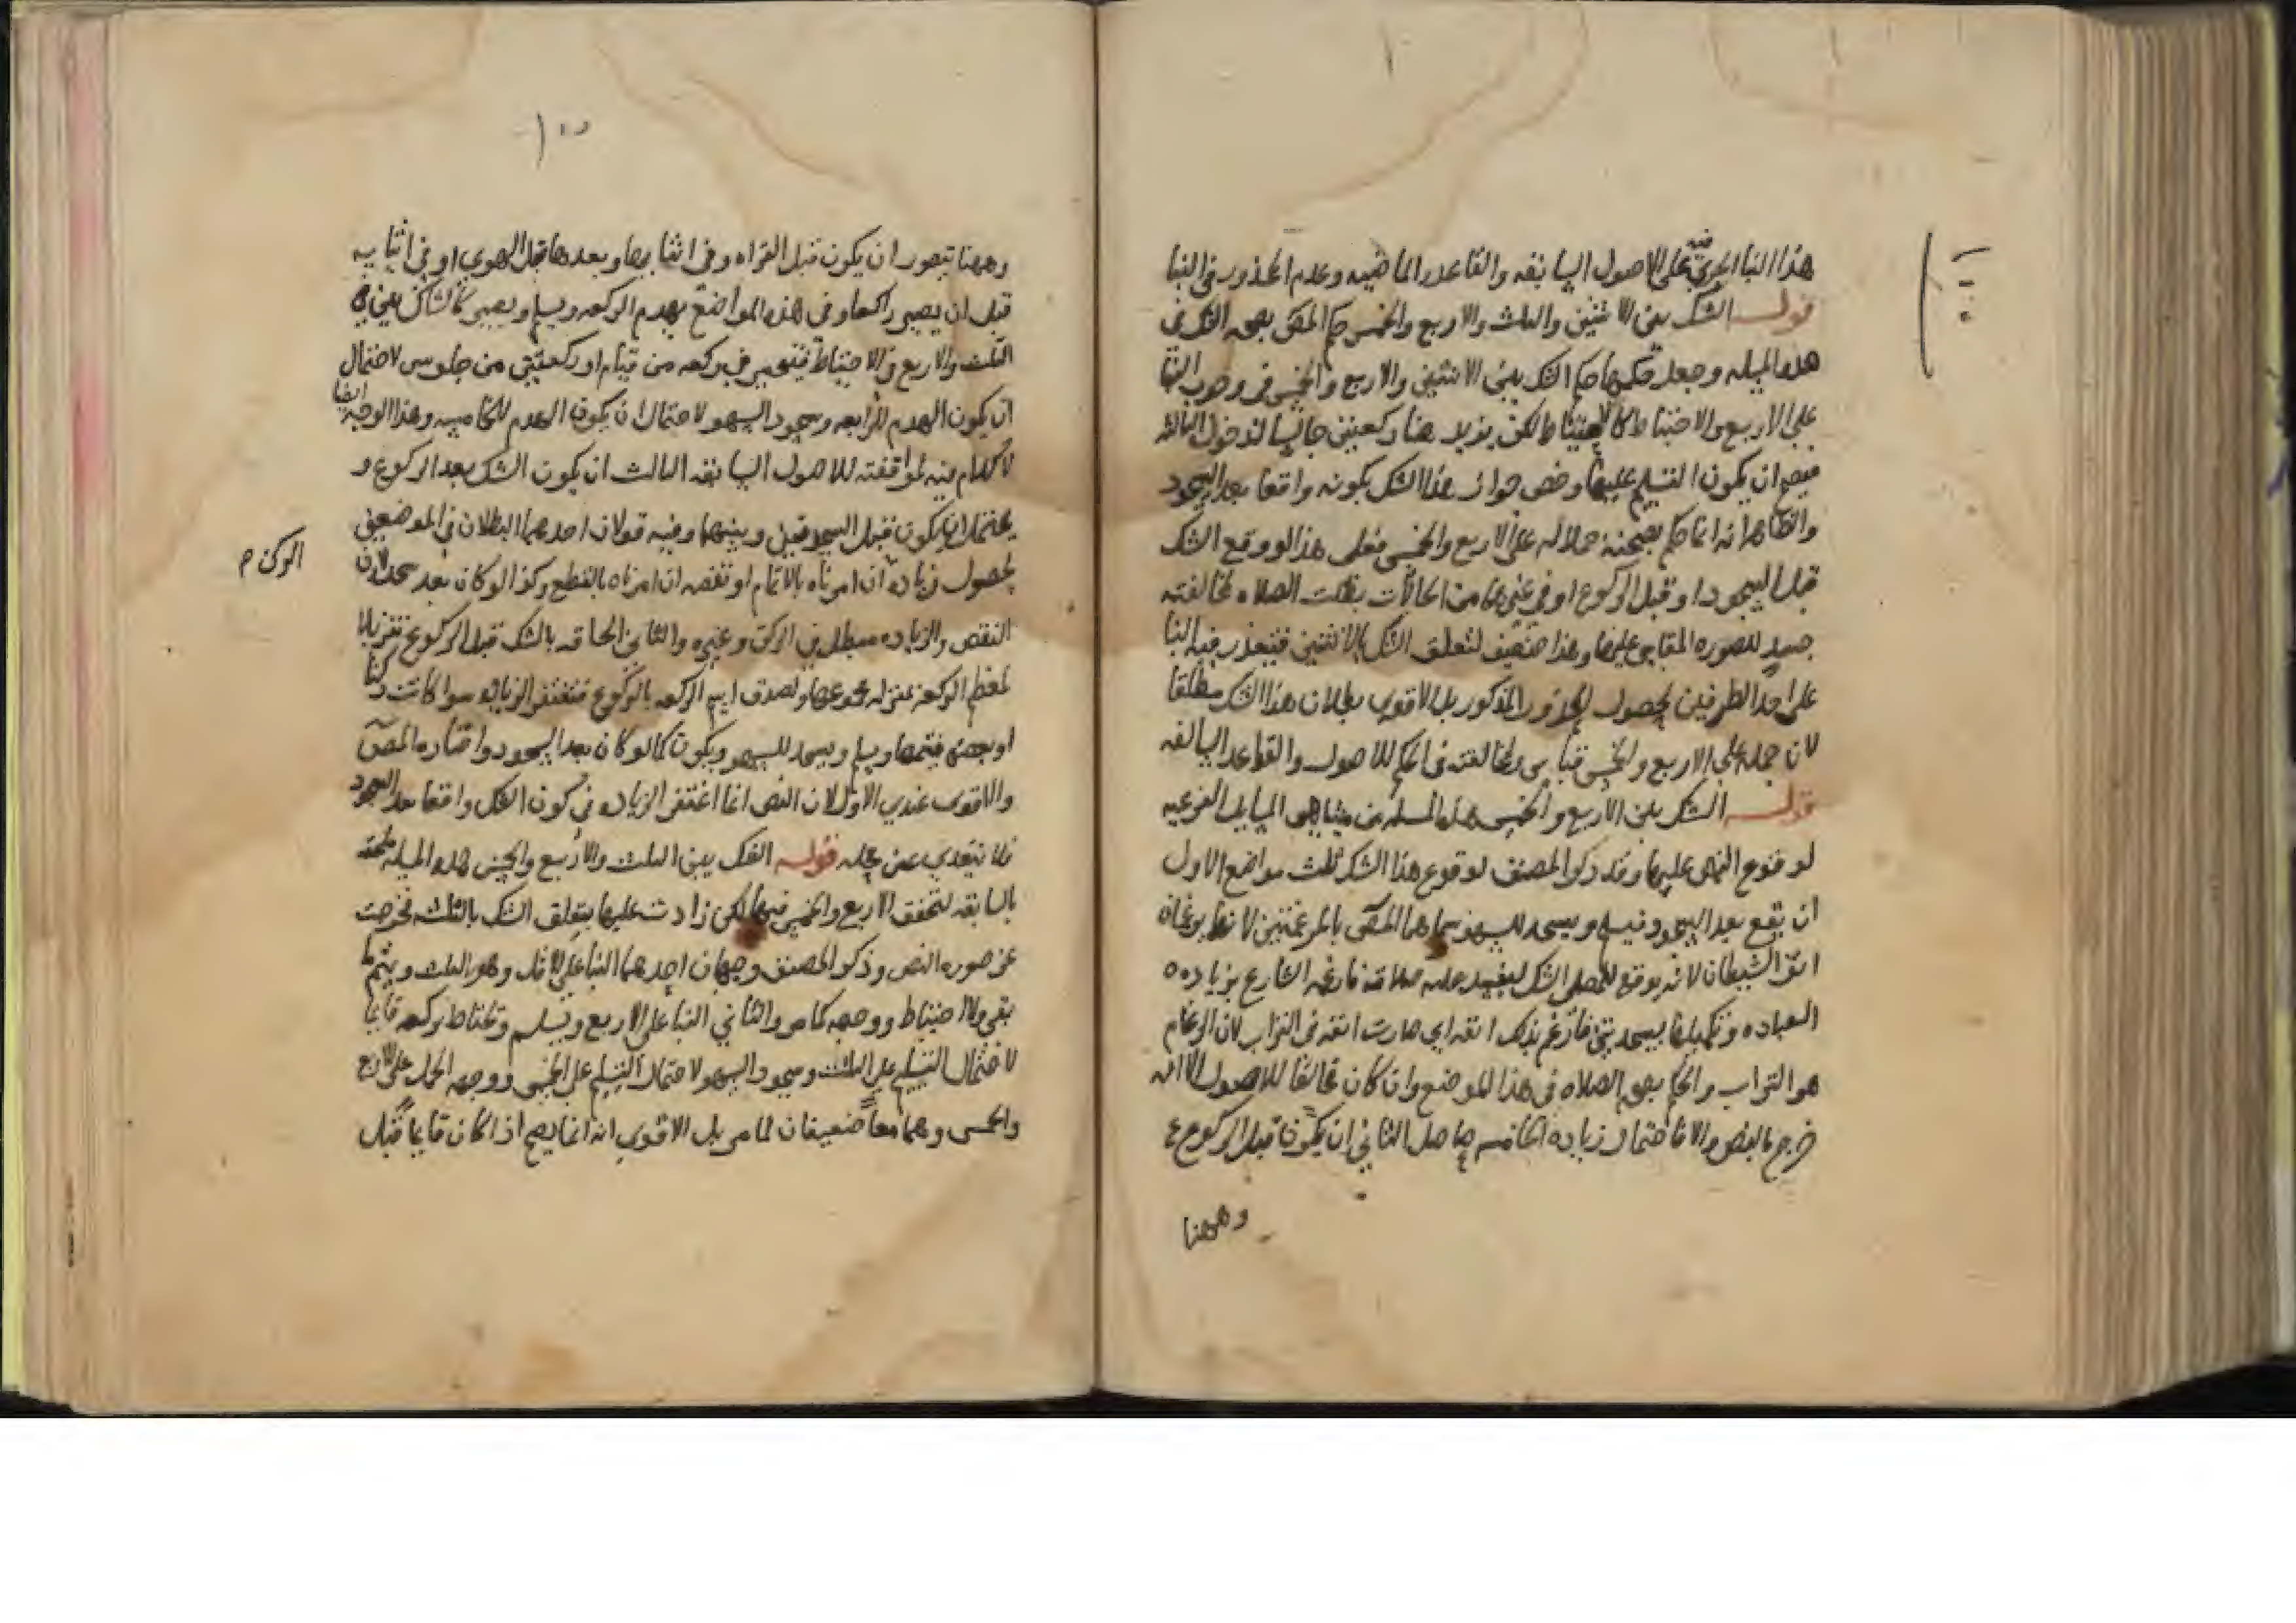 هذا البنا الجري فيه على الاصول السابقه والقاعده الماضيه وعدم المحذور في البنا
قوله الشك بين الاثنين والثلث والاربع والخمس حكم المص بصحه الشك في
هذه المسله وجعل حكمها حكم الشك بين الاثنين والاربع والخمس في وجوب البنا
على الاربع والاحتياط لكن يزيد هنا ركعتين جالسا لدخول الثالثه
فيصح ان يكون التسليم عليها وخص جواز هذا الشك بكونه واقعا بعد السجود
والظاهر انه انما حكم بصحته حملا له على الاربع والخمس فعلى هذا لو وقع الشك
قبل السجود او قبل الركوع او في غيرها من الحالات بطلت الصلاه لمخالفته
للصوره المقاس عليها وهذا ضعيف لتعلق الشك بالاثنين فيتعذر فيه البنا
على احد الطرفين لحصول المحذور المذكور بل الاقوى بطلان هذا الشك مطلقا
لان حمله على الاربع والخمس قياس لمخالفته في الحكم للاصول والقواعد السالفه
قوله الشك بين الاربع والخمس هذه المسله من مشاهير المسايل الفرعيه
لوقوع النص عليها وقد ذكر المصنف لوقوع هذا الشك ثلث مواضع الاول
ان يقع بعد السجود فيسلم ويسجد للسهو سماهما المص بالمرغمتين لانهما يرغمان
انف الشيطان لانه يوقع للمصلي الشك ليفسد عليه صلاته فارغمه الشارع بزياده
العباده وتكميلها بسجدتين فارغم بذلك انفه اي صارت انفه في التراب لان الرغام
هو التراب والحكم بصحه الصلاه في هذا الموضع وان كان مخالفا للاصول الا انه
خرج بالنص والا فاحتمال زياده الخامسه حاصل الثاني ان يكون قبل الركوع
وههنا
وههنا يتصور ان يكون قبل القراه وفي اثنايها وبعدها قبل الهوي او في اثنايه
قبل ان يصير راكعا وفي هذه المواضع يهدم الركعه ويسلم ويصير كالشاك بين
الثلث والاربع والاحتياط فيتخير في ركعه من قيام او ركعتين من جلوس لاحتمال
ان يكون الهدم للرابعه وسجود السهو لاحتمال ان يكون الهدم للخامسه وهذا الوجه ايضا
لا كلام فيه لموافقته للاصول السابقه الثالث ان يكون الشك بعد الركوع و
يكون قبل السجدتين وبينهما وفيه قولان احدهما البطلان في الموضعين
لحصول زياده الركن ان امرناه بالاتمام او نقصه ان امرناه بالقطع وكذا لو كان بعد سجده لان
النقص والزياده مبطل في الركن وغيره والثاني الحاقه بالشك قبل الركوع تنزيلا
لمعظم الركعه بمنزله مجموعها ولصدق اسم الركعه بالركوع فتغتفر الزياده سوا كانت ركنا
او بعضه فيتمها ويسلم ويسجد للسهو ويكون كما لو كان بعد السجود واختاره المص
والاقوى عندي الاول لان النص انما اغتفر الزياده في كون الشك واقعا بعد السجود
فلا يتعدي عن محله قوله الشك بين الثلث والاربع والخمس هذه المسله ملحقه
بالسابقه لتحقق الاربع والخمس فيها لكن زادت عليها بتعلق الشك بالثلث فخرجت
عن صوره النص وذكر المصنف وجهان احدهما البنا على الاقل وهو الثلث ويتم ما
بقي ولا احتياط ووجهه كما مر والثاني البنا على الاربع ويسلم ويحتاط بركعه قايما
لاحتمال التسليم على الثلث وسجود السهو لاحتمال التسليم على الخمس ووجهه الحمل على الاربع
والخمس وهما معا ضعيفان لما مر بل الاقوى انه انما يصح اذا كان قايما قبل
الركن